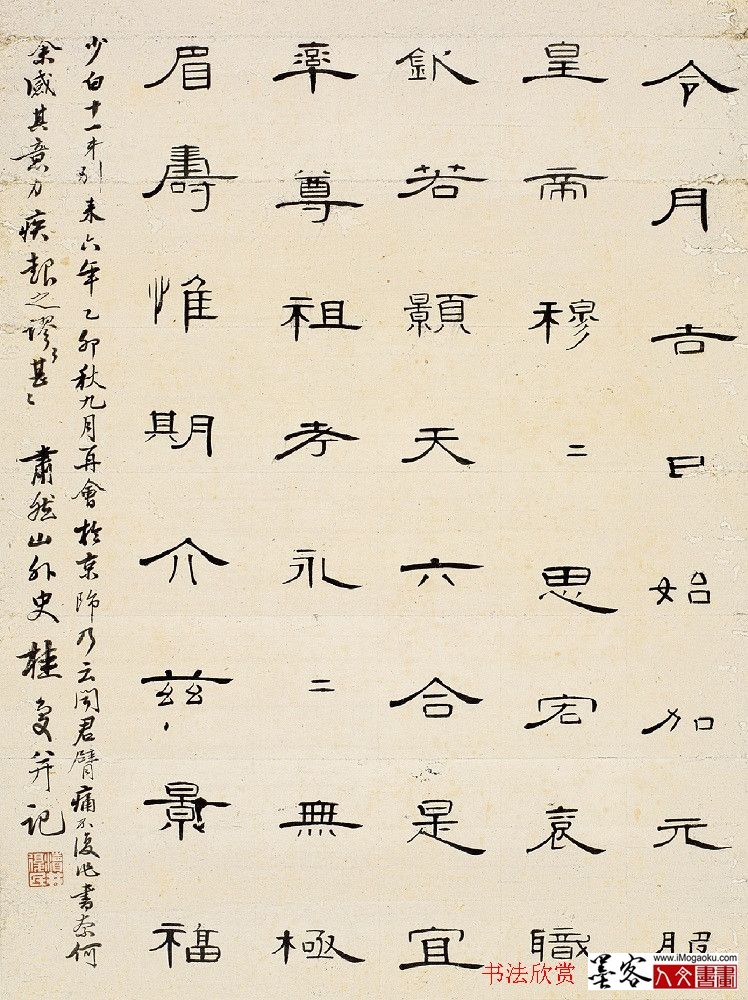 令月吉日始加元服
皇帝穆二思宏袞職
欽若顥天六合是宜
率尊祖考永二無極
眉壽惟期介兹景福
少白十一弟别来六年乙卯秋九月再會於京師乃云聞君臂痛不復作書奈何
余感其意力疾報之謬二甚二 肅然山外史桂馥并記
书法欣赏
墨客
人文書畫
www.iMogaoku.com